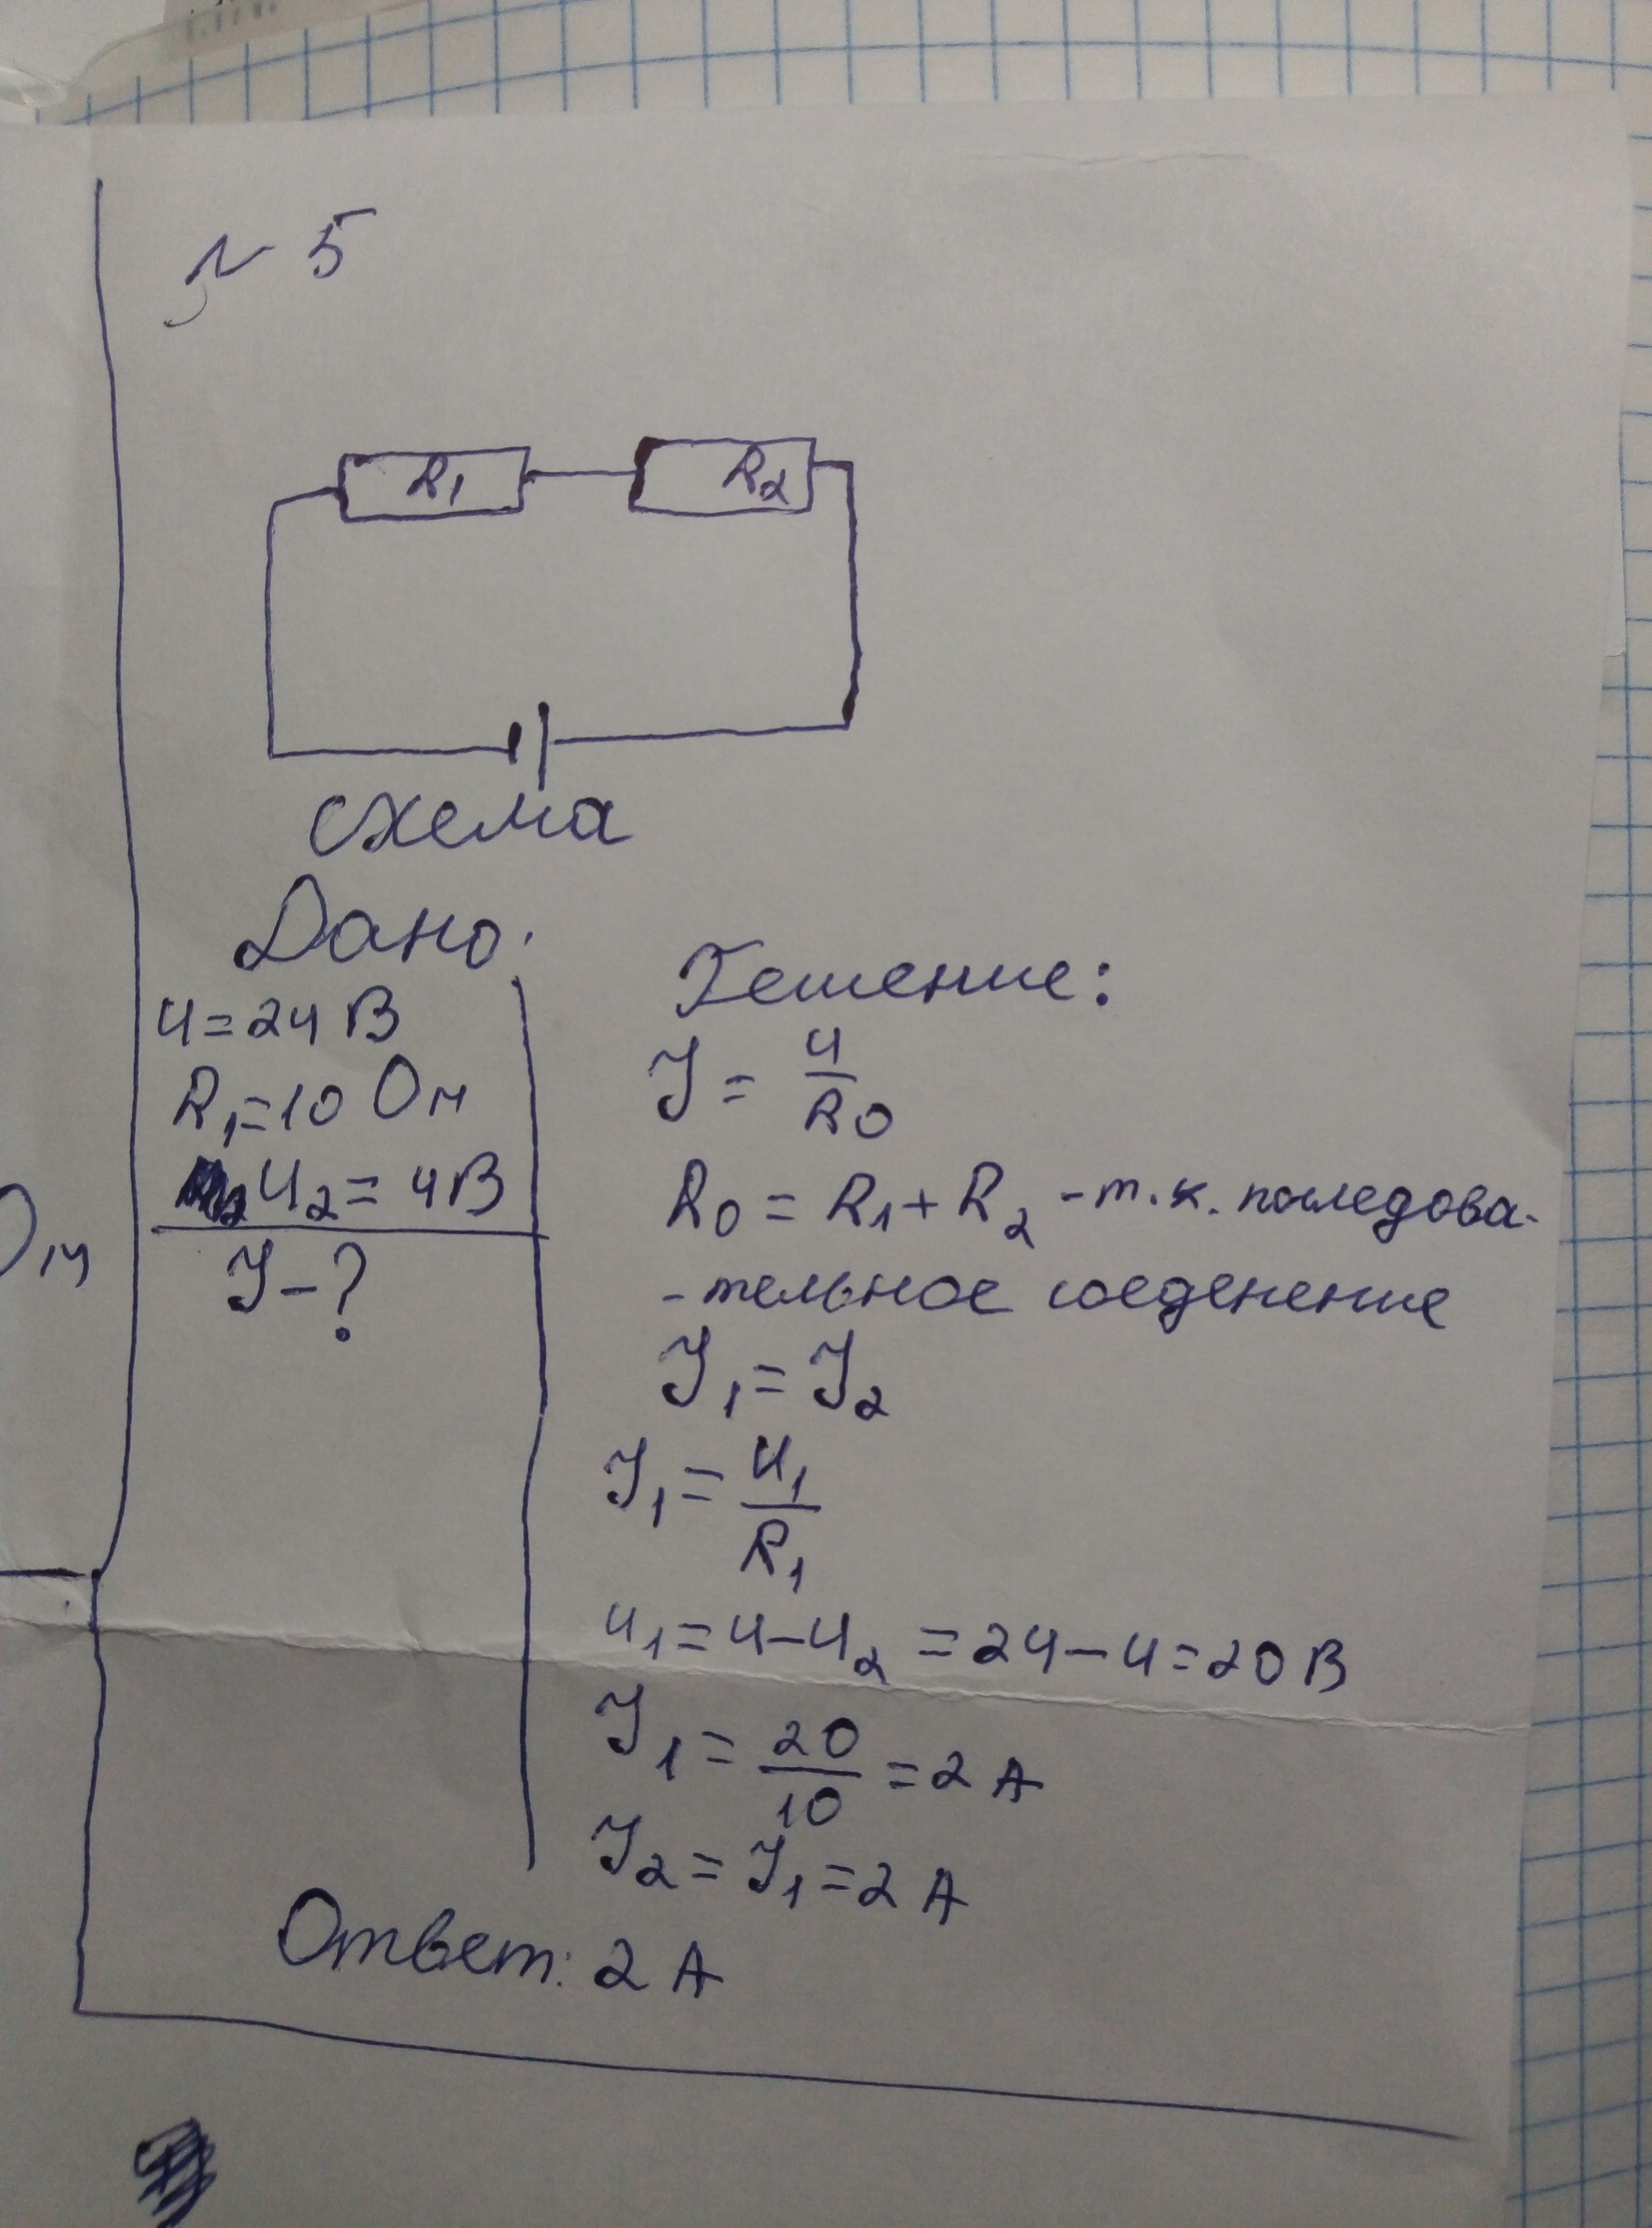 № 5
R1 R2
схема
Дано:
U=24 В
R1=10 Ом
U2=4В
I-?
Решение:
I = U/R0
R0 = R1+R2 -т.к. последова-
-тельное соеденение
I1=I2
I1=U1/R1
U1=U-U2=24-4=20В
I1=20/10=2 А
I2=I1=2 А
Ответ: 2 А
Ом